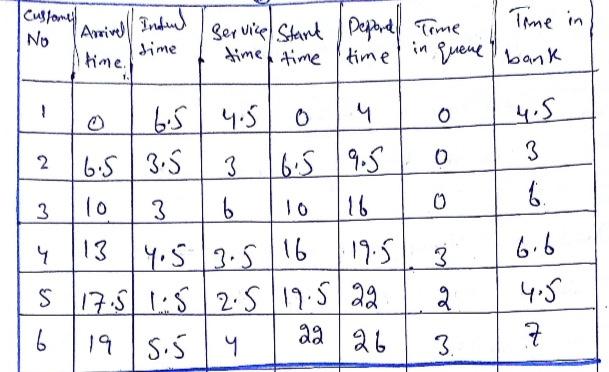 Customer No | Arrival time | Interval time | Service time | Start time | Depart time | Time in queue | Time in bank
1 | 0 | 6.5 | 4.5 | 0 | 4 | 0 | 4.5
2 | 6.5 | 3.5 | 3 | 6.5 | 9.5 | 0 | 3
3 | 10 | 3 | 6 | 10 | 16 | 0 | 6
4 | 13 | 4.5 | 3.5 | 16 | 19.5 | 3 | 6.6
5 | 17.5 | 1.5 | 2.5 | 19.5 | 22 | 2 | 4.5
6 | 19 | 5.5 | 4 | 22 | 26 | 3 | 7